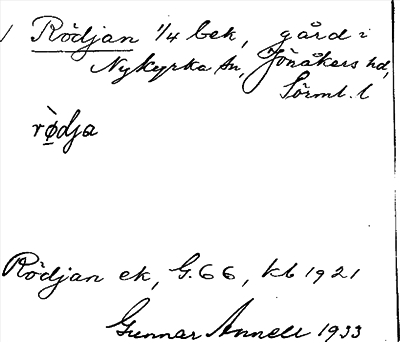 Rödjan 1/4 bek, gård i
Nykyrka sn, Jönåkers hd,
Sörml. l
rø̀dja
Rödjan ek, G.66, kb 1921
Gunnar Annell 1933